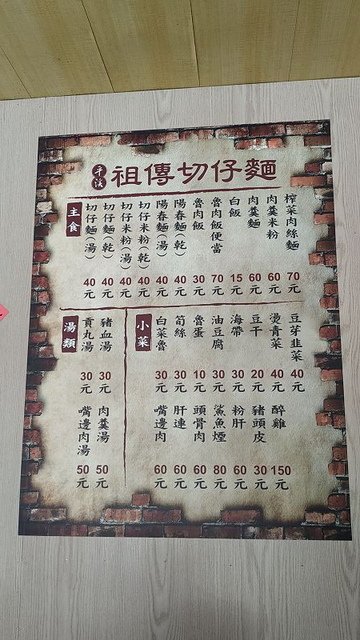 祖傳切仔麵
主食
切仔麵(湯) 40元
切仔麵(乾) 40元
切仔米粉(湯) 40元
切仔米粉(乾) 40元
陽春麵(湯) 40元
陽春麵(乾) 40元
魯肉飯 30元
魯肉飯便當 70元
白飯 15元
肉羹麵 60元
肉羹米粉 60元
榨菜肉絲麵 70元
湯類
貢丸湯 30元
豬血湯 30元
嘴邊肉湯 50元
肉羹湯 50元
小菜
白菜魯 30元
筍絲 30元
魯蛋 10元
油豆腐 30元
海帶 30元
豆干 20元
燙青菜 40元
豆芽韭菜 40元
嘴邊肉 60元
肝連 60元
頭骨肉 60元
鯊魚煙 80元
粉肝 60元
豬頭皮 30元
醉雞 150元